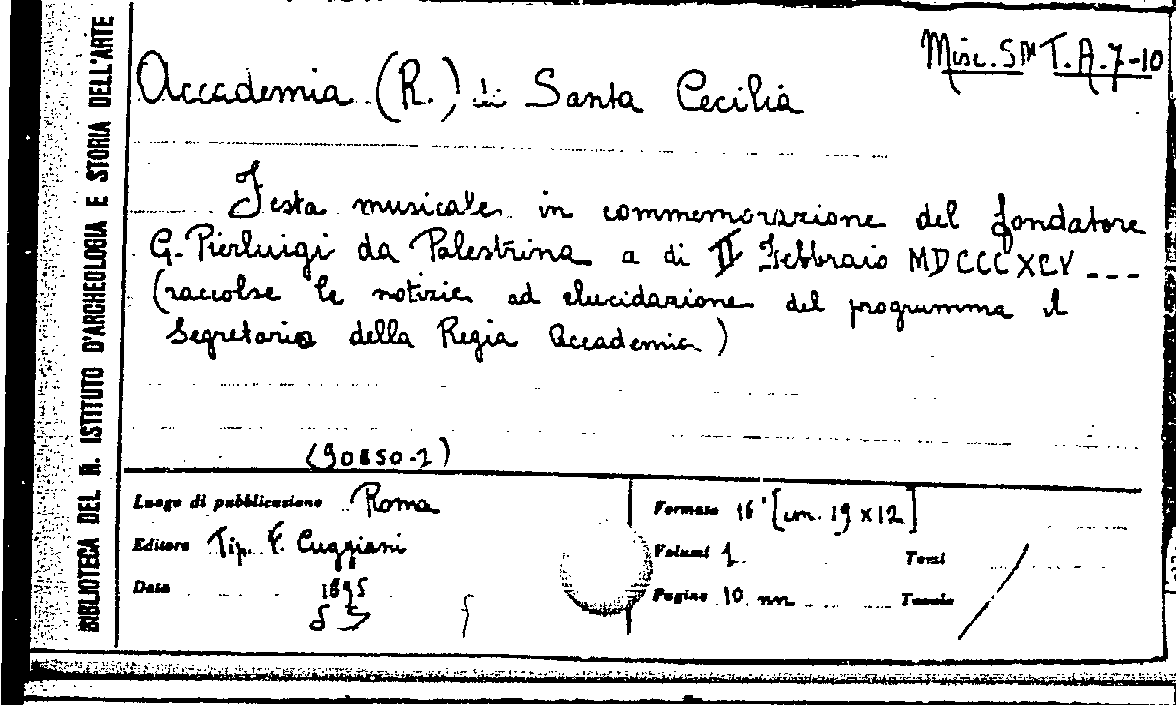 Misc. SM T. A. 7-10
Accademia (R.) di Santa Cecilia
Festa musicale in commemorazione del fondatore
G. Pierluigi da Palestrina a di II Febbraio MDCCCXCV ---
(raccolse le notizie ad elucidazione del programma il
Segretario della Regia Accademia)
Luogo di pubblicazione Roma
Editore Tip. F. Cuggiani
Data 1895
Formato 16° [cm. 19 x 12]
Volumi 1 Tomi
Pagine 10 nn Tavole
BIBLIOTECA DEL R. ISTITUTO D'ARCHEOLOGIA E STORIA DELL'ARTE